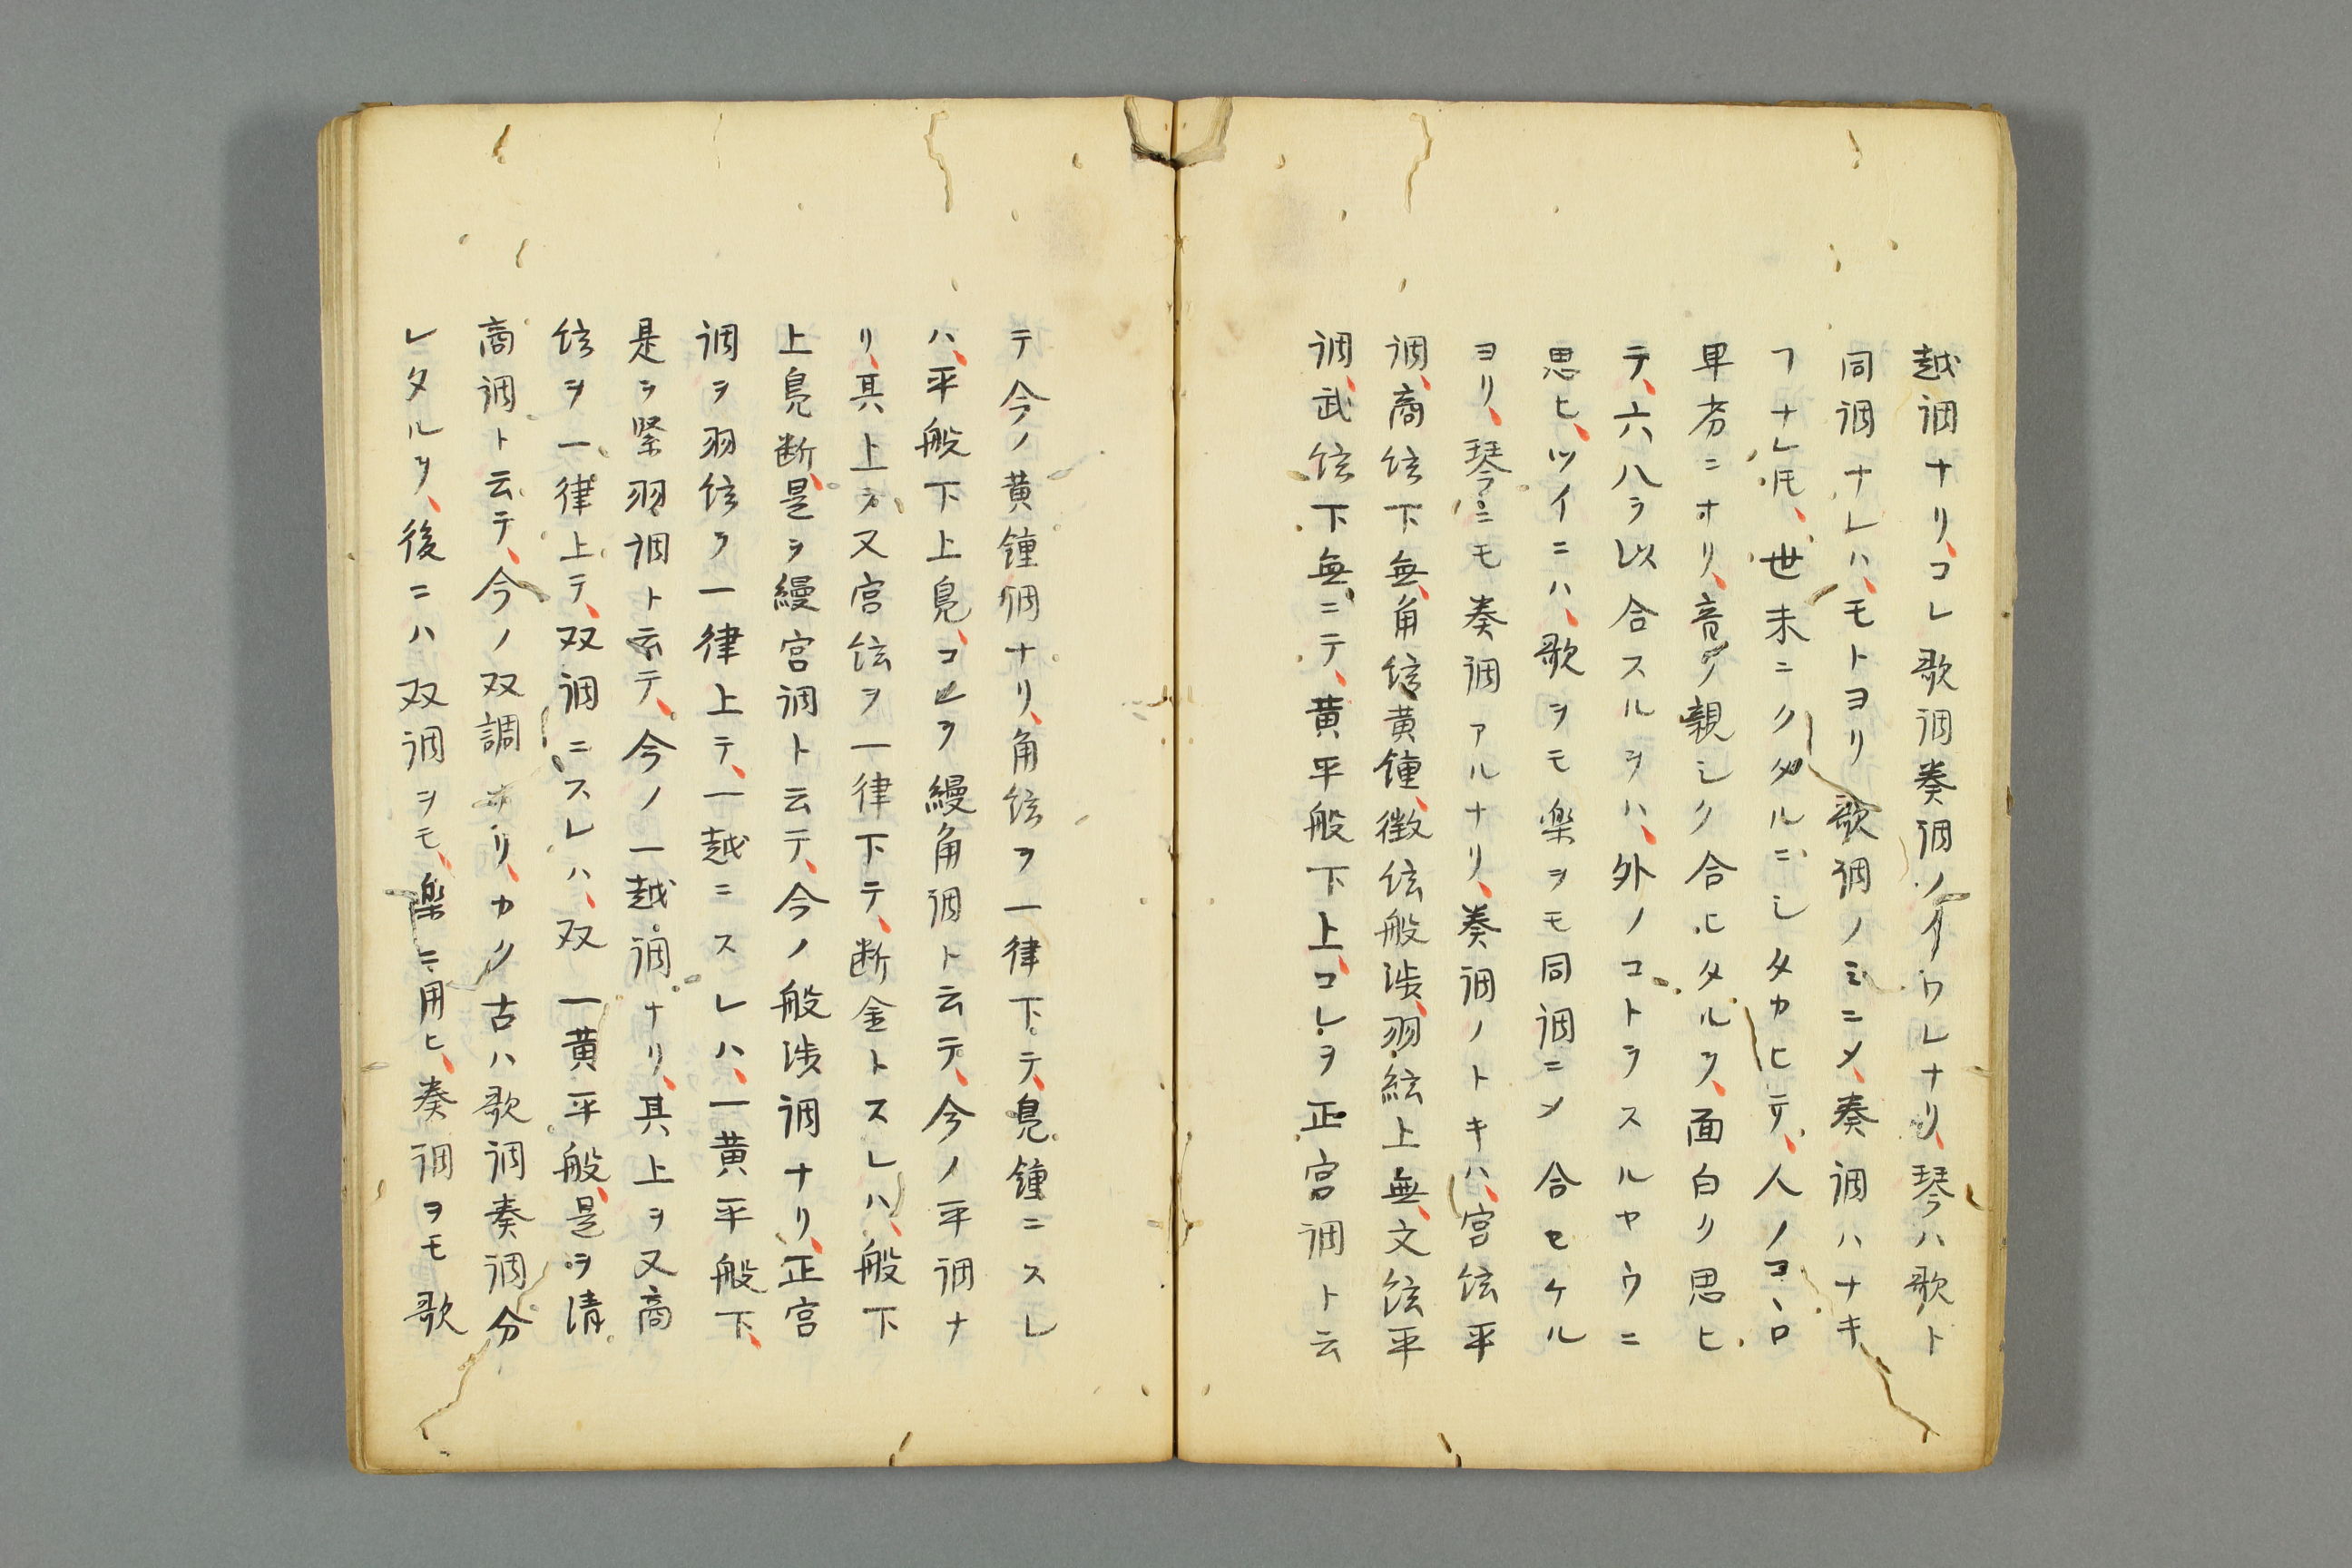 越调ナリ、コレ歌调奏调ノイワレナリ、琴ハ歌ト
同调ナレハ、モトヨリ歌调ノミニメ、奏调ハナキ
フナレ𪜈、世末ニクタルニシタカヒテ、人ノコヽロ
卑劣ニオリ、音ノ親シク合ヒタルヲ、面白リ思ヒ
テ、六八ラ以合スルヲハ、外ノコトラスルヤウニ
思ヒ、ツイニハ、歌ヲモ楽ヲモ同调ニメ合セケル
ヨリ、琴ニモ奏调アルナリ、奏调ノトキハ、宮弦平
调、商弦下無、角弦黄鐘、徴弦般渉、羽絃上無、文弦平
调、武弦下無ニテ、黄平般下上、コレヲ正宮调ト云
テ今ノ黄鐘调ナリ、角弦ヲ一律下テ、鳬鐘ニスレ
ハ、平般下上鳬、コレヲ縵角调ト云テ、今ノ平调ナ
リ、其上ヲ又宮弦ヲ一律下テ、断金トスレハ、般下
上鳬断、是ヲ縵宮调ト云テ、今ノ般渉调ナリ、正宮
调ヲ羽弦ヲ一律上テ、一越ニスレハ、一黄平般下、
是ヲ緊羽调ト云テ、今ノ一越调ナリ、其上ヲ又商
弦ヲ一律上テ、双调ニスレハ、双一黄平般、是ヲ清
商调ト云テ、今ノ双調ナリ、カク古ハ歌调奏调分
レタルヲ、後ニハ双调ヲモ、楽ニ用ヒ、奏调ヲモ歌